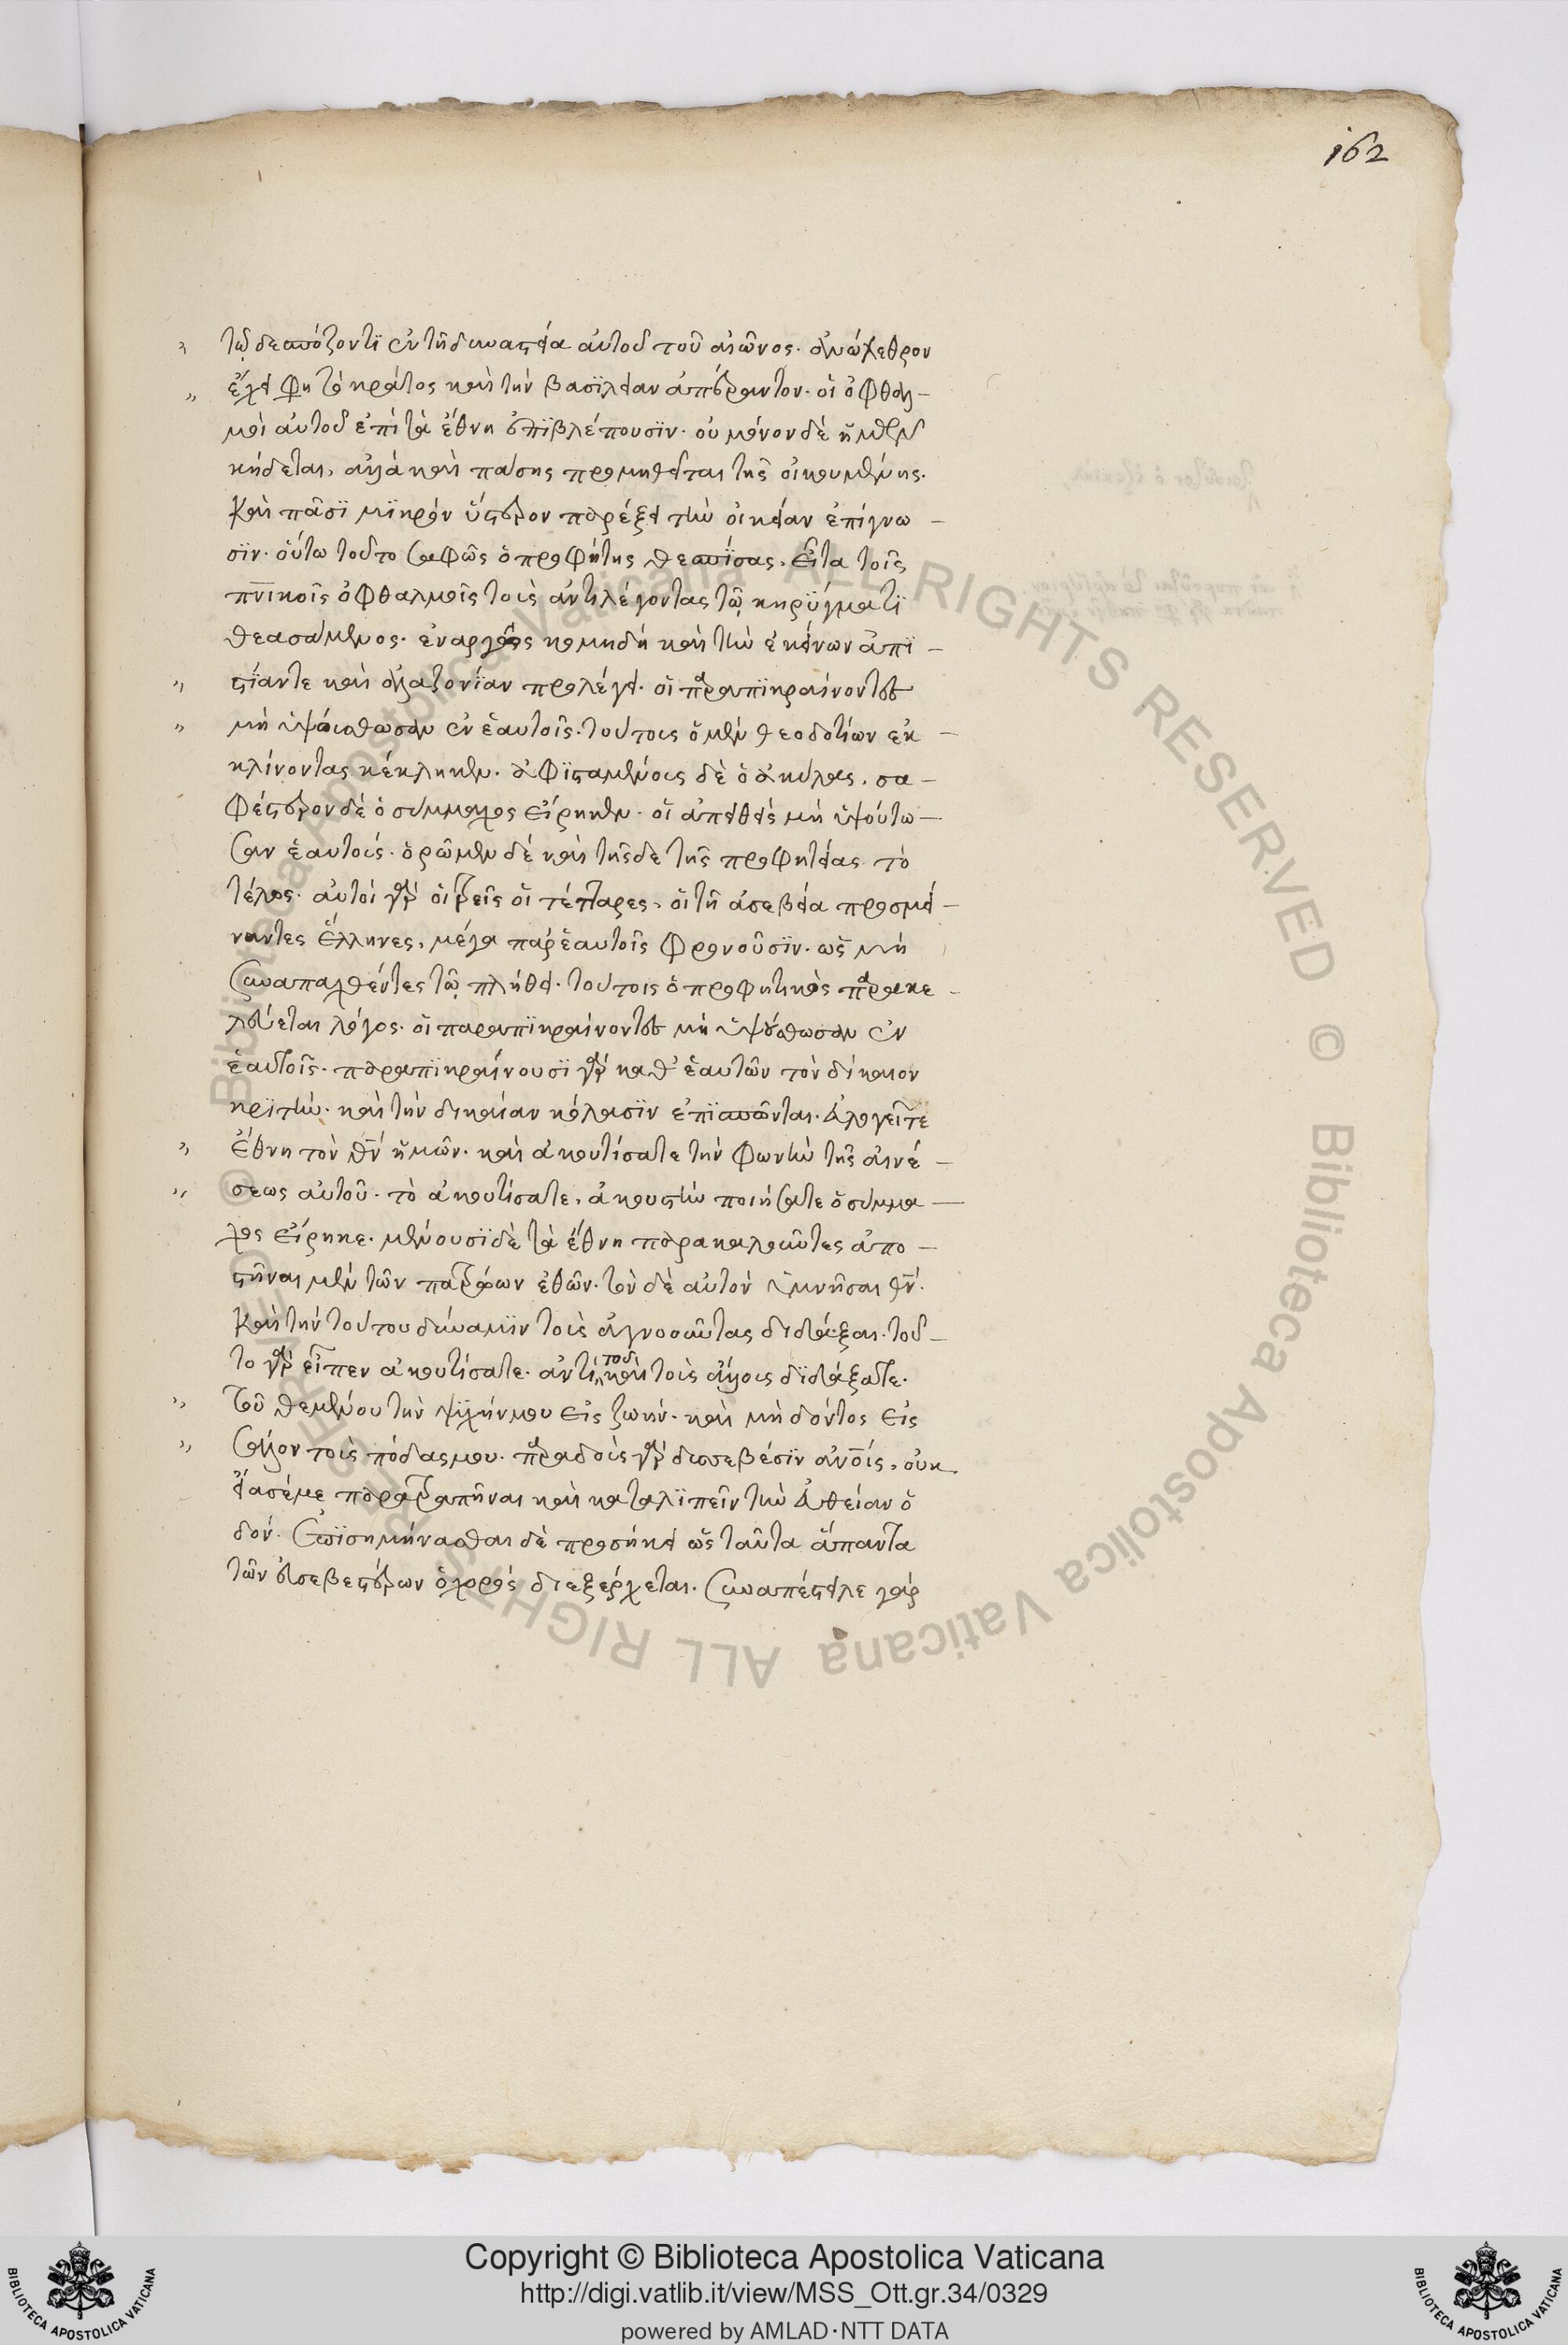 162
τῷ δεσπόζοντι ἐν τῇ δυναστεία αὐτοῦ τοῦ αἰῶνος. ἀνώλεθρον
ἔχει φη τὸ κράτος καὶ τὴν βασϊλείαν ἀπέραντον. οἱ ὀφθαλ-
μοὶ αὐτοῦ ἐπὶ τὰ ἔθνη ἐπϊβλέπουσϊν. οὐ μόνον δὲ ἡμῶν
κήδεται, ἀλλὰ καὶ πάσης προμηθεῖται τῆς οἰκουμένης.
Καὶ πᾶσϊ μϊκρὸν ὕστερον παρέξει τὴν οἰκείαν ἐπίγνω-
σϊν. οὕτω τοῦτο σαφῶς ὁ προφήτης θεσπίσας. Εἶτα τοῖς
πν̅ικοῖς ὀφθαλμοῖς τοὺς ἀντιλέγοντας τῷ κηρύγματϊ
θεασάμενος. ἐναργῶς κομιδῆ καὶ τὴν ἐκείνων ἀπϊ-
στίαν τε καὶ ἀλαζονΐαν προλέγει. οἱ παραπϊκραίνοντες
μὴ ὑψούσθωσαν ἐν ἑαυτοῖς. τούτους ὁ μὲν θεοδοτίων ἐκ-
κλίνοντας κέκληκεν. ἀφϊσταμένους δὲ ὁ ἀκύλας. σα-
φέστερον δὲ ὁ σύμμαχος εἴρηκεν. οἱ ἀπειθεῖς μὴ ὑψούτω-
σαν ἑαυτούς. ὁρῶμεν δὲ καὶ τῆσδε τῆς προφητείας τὸ
τέλος. αὐτοὶ γὰρ οἱ τρεῖς οἱ τέτταρες, οἱ τῇ ἀσεβεία προσμεί-
ναντες ἕλληνες, μέγα παρ' ἑαυτοῖς φρονοῦσϊν. ὡς μὴ
συναπαχθέντες τῷ πλήθει. τούτοις ὁ προφητικὸς παρακε-
λεύεται λόγος. οἱ παραπϊκραίνοντες μὴ ὑψούσθωσαν ἐν
ἑαυτοῖς. παραπικραίνουσϊ γὰρ καθ' ἑαυτῶν τὸν δίκαιον
κρϊτὴν. καὶ τὴν δικαίαν κόλασϊν ἐπϊσπῶνται. Εὐλογεῖτε
ἔθνη τὸν θν̅ ἡμῶν. καὶ ἀκουτίσατε τὴν φωνὴν τῆς αἰνέ-
σεως αὐτοῦ. τὸ ἀκουτίσατε, ἀκουστὴν ποιήσατε ὁ σύμμα-
χος εἴρηκε. μενουσϊ δὲ τὰ ἔθνη παρακαλοῦντες ἀπο-
στῆναι μὲν τῶν πατρώων ἐθῶν. τὸν δὲ αὐτὸν ὑμνῆσαι θν̅.
Καὶ τὴν τούτου δύναμϊν τοὺς ἀγνοοῦντας διδάξαι. τοῦ-
το γὰρ εἶπεν ἀκουτίσατε. ἀντὶ τοῦ καὶ τοὺς ἄλλους δϊδάξατε.
Τοῦ θεμένου τὴν ψϋχήν μου εἰς ζωήν. καὶ μὴ δόντος εἰς
σάλον τοὺς πόδας μου. παραδοὺς γὰρ δυσσεβέσϊν ἀνο̅ις, οὐκ
εἴασέ με παρατραπῆναι καὶ καταλϊπεῖν τὴν εὐθεῖαν ὁ
δόν. Ἐπϊσημήνασθαι δὲ προσήκει ὡς ταῦτα ἅπαντα
τῶν εὐσεβεστέρων ὁ χορὸς διεξέρχεται. Συναπέστειλε γὰρ
Copyright © Biblioteca Apostolica Vaticana
http://digi.vatlib.it/view/MSS_Ott.gr.34/0329
powered by AMLAD·NTT DATA